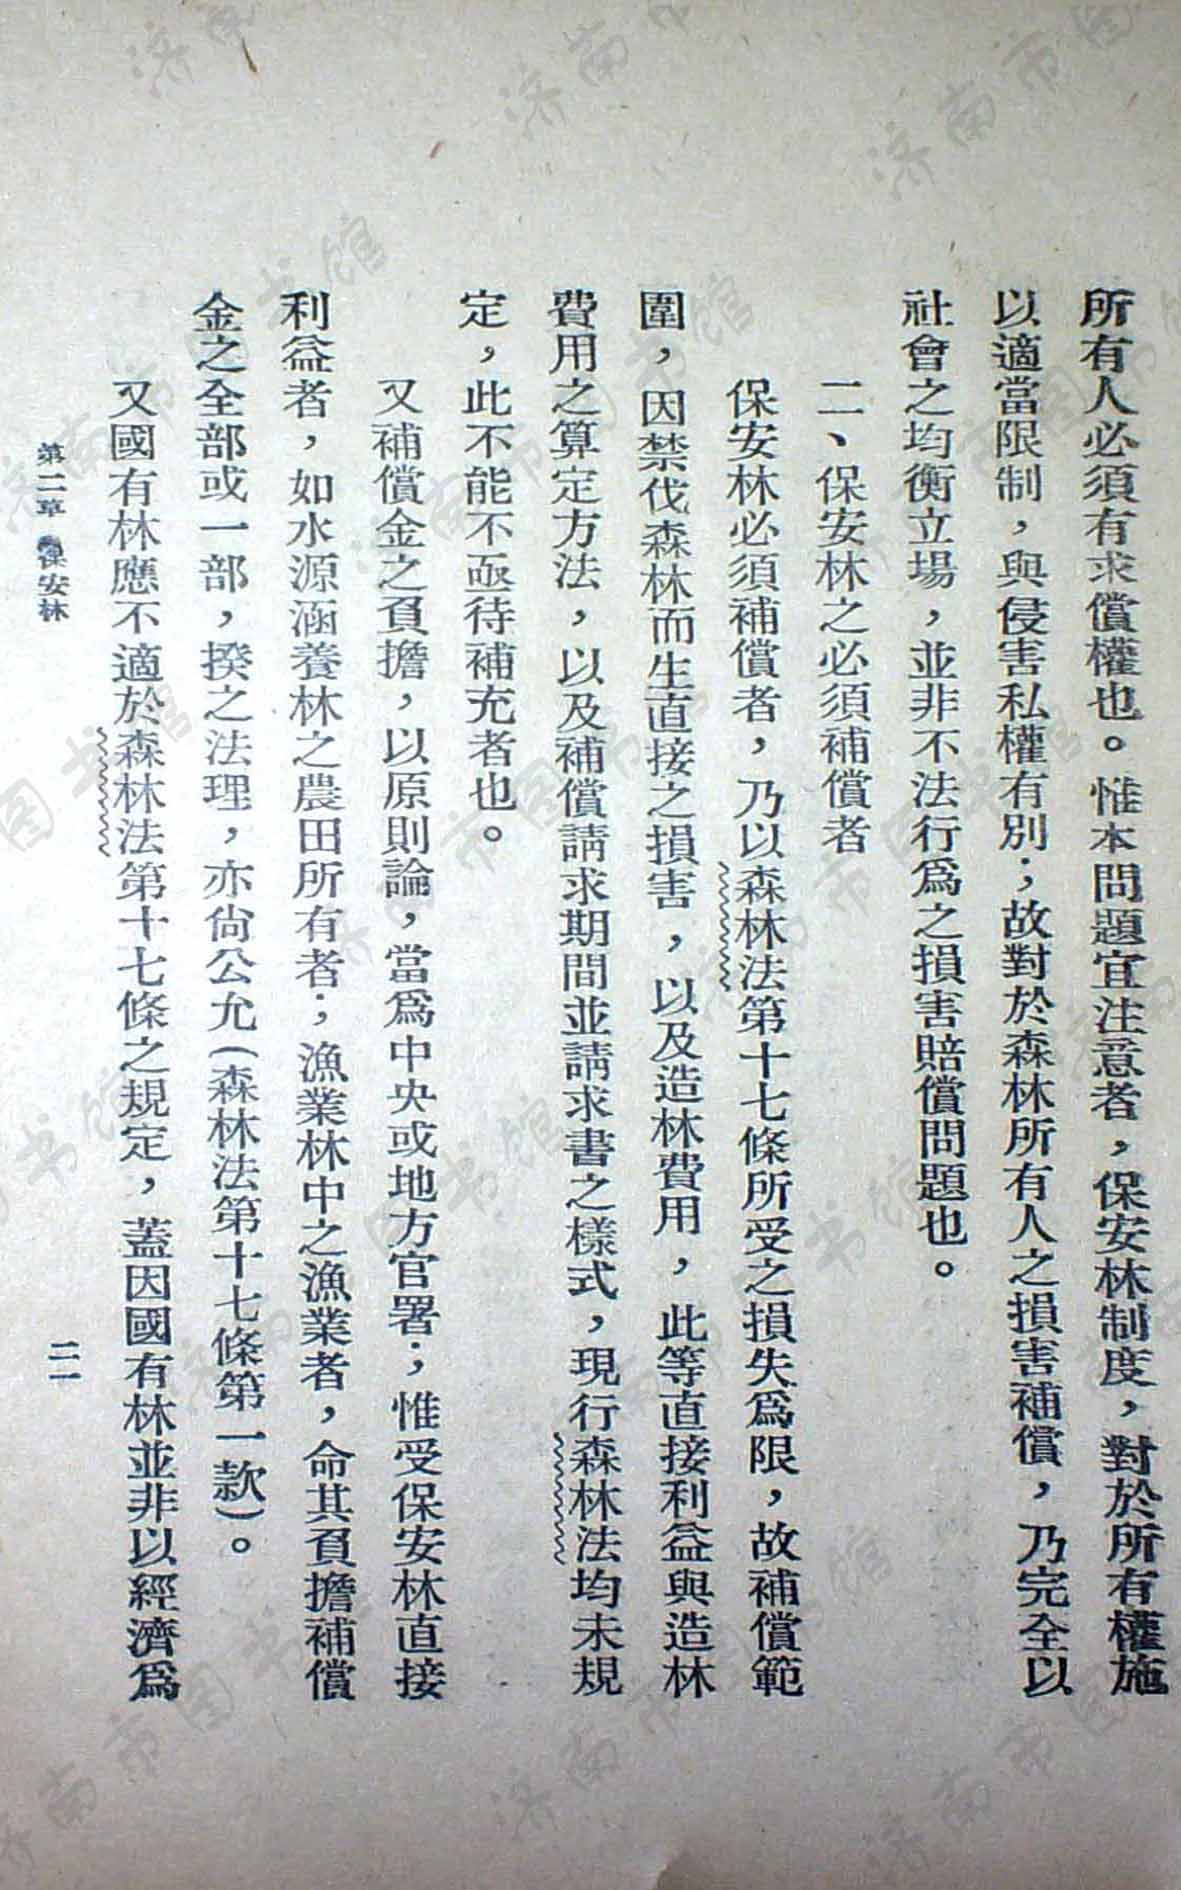 所有人必須有求償權也。惟本問題宜注意者，保安林制度，對於所有權施
以適當限制，與侵害私權有別；故對於森林所有人之損害補償，乃完全以
社會之均衡立場，並非不法行爲之損害賠償問題也。
二、保安林之必須補償者
保安林必須補償者，乃以森林法第十七條所受之損失爲限，故補償範
圍，因禁伐森林而生直接之損害，以及造林費用，此等直接利益與造林
費用之算定方法，以及補償請求期間並請求書之樣式，現行森林法均未規
定，此不能不亟待補充者也。
又補償金之負擔，以原則論，當爲中央或地方官署；惟受保安林直接
利益者，如水源涵養林之農田所有者；漁業林中之漁業者，命其負擔補償
金之全部或一部，揆之法理，亦尙公允（森林法第十七條第一款）。
又國有林應不適於森林法第十七條之規定，蓋因國有林並非以經濟爲
第二章 保安林
二一
济南市图书馆